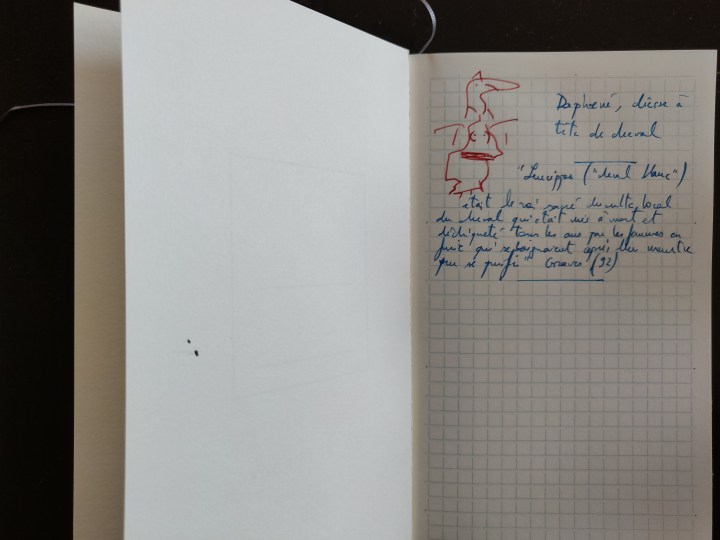 Daphoené, déesse à
tête de cheval
"Leucippe ("cheval blanc")
était le roi sacré du culte local
du cheval qui était mis à mort et
déchiqueté tous les ans par les femmes en
furie qui se baignaient après leur meurtre
pour se purifier" Graves (92)